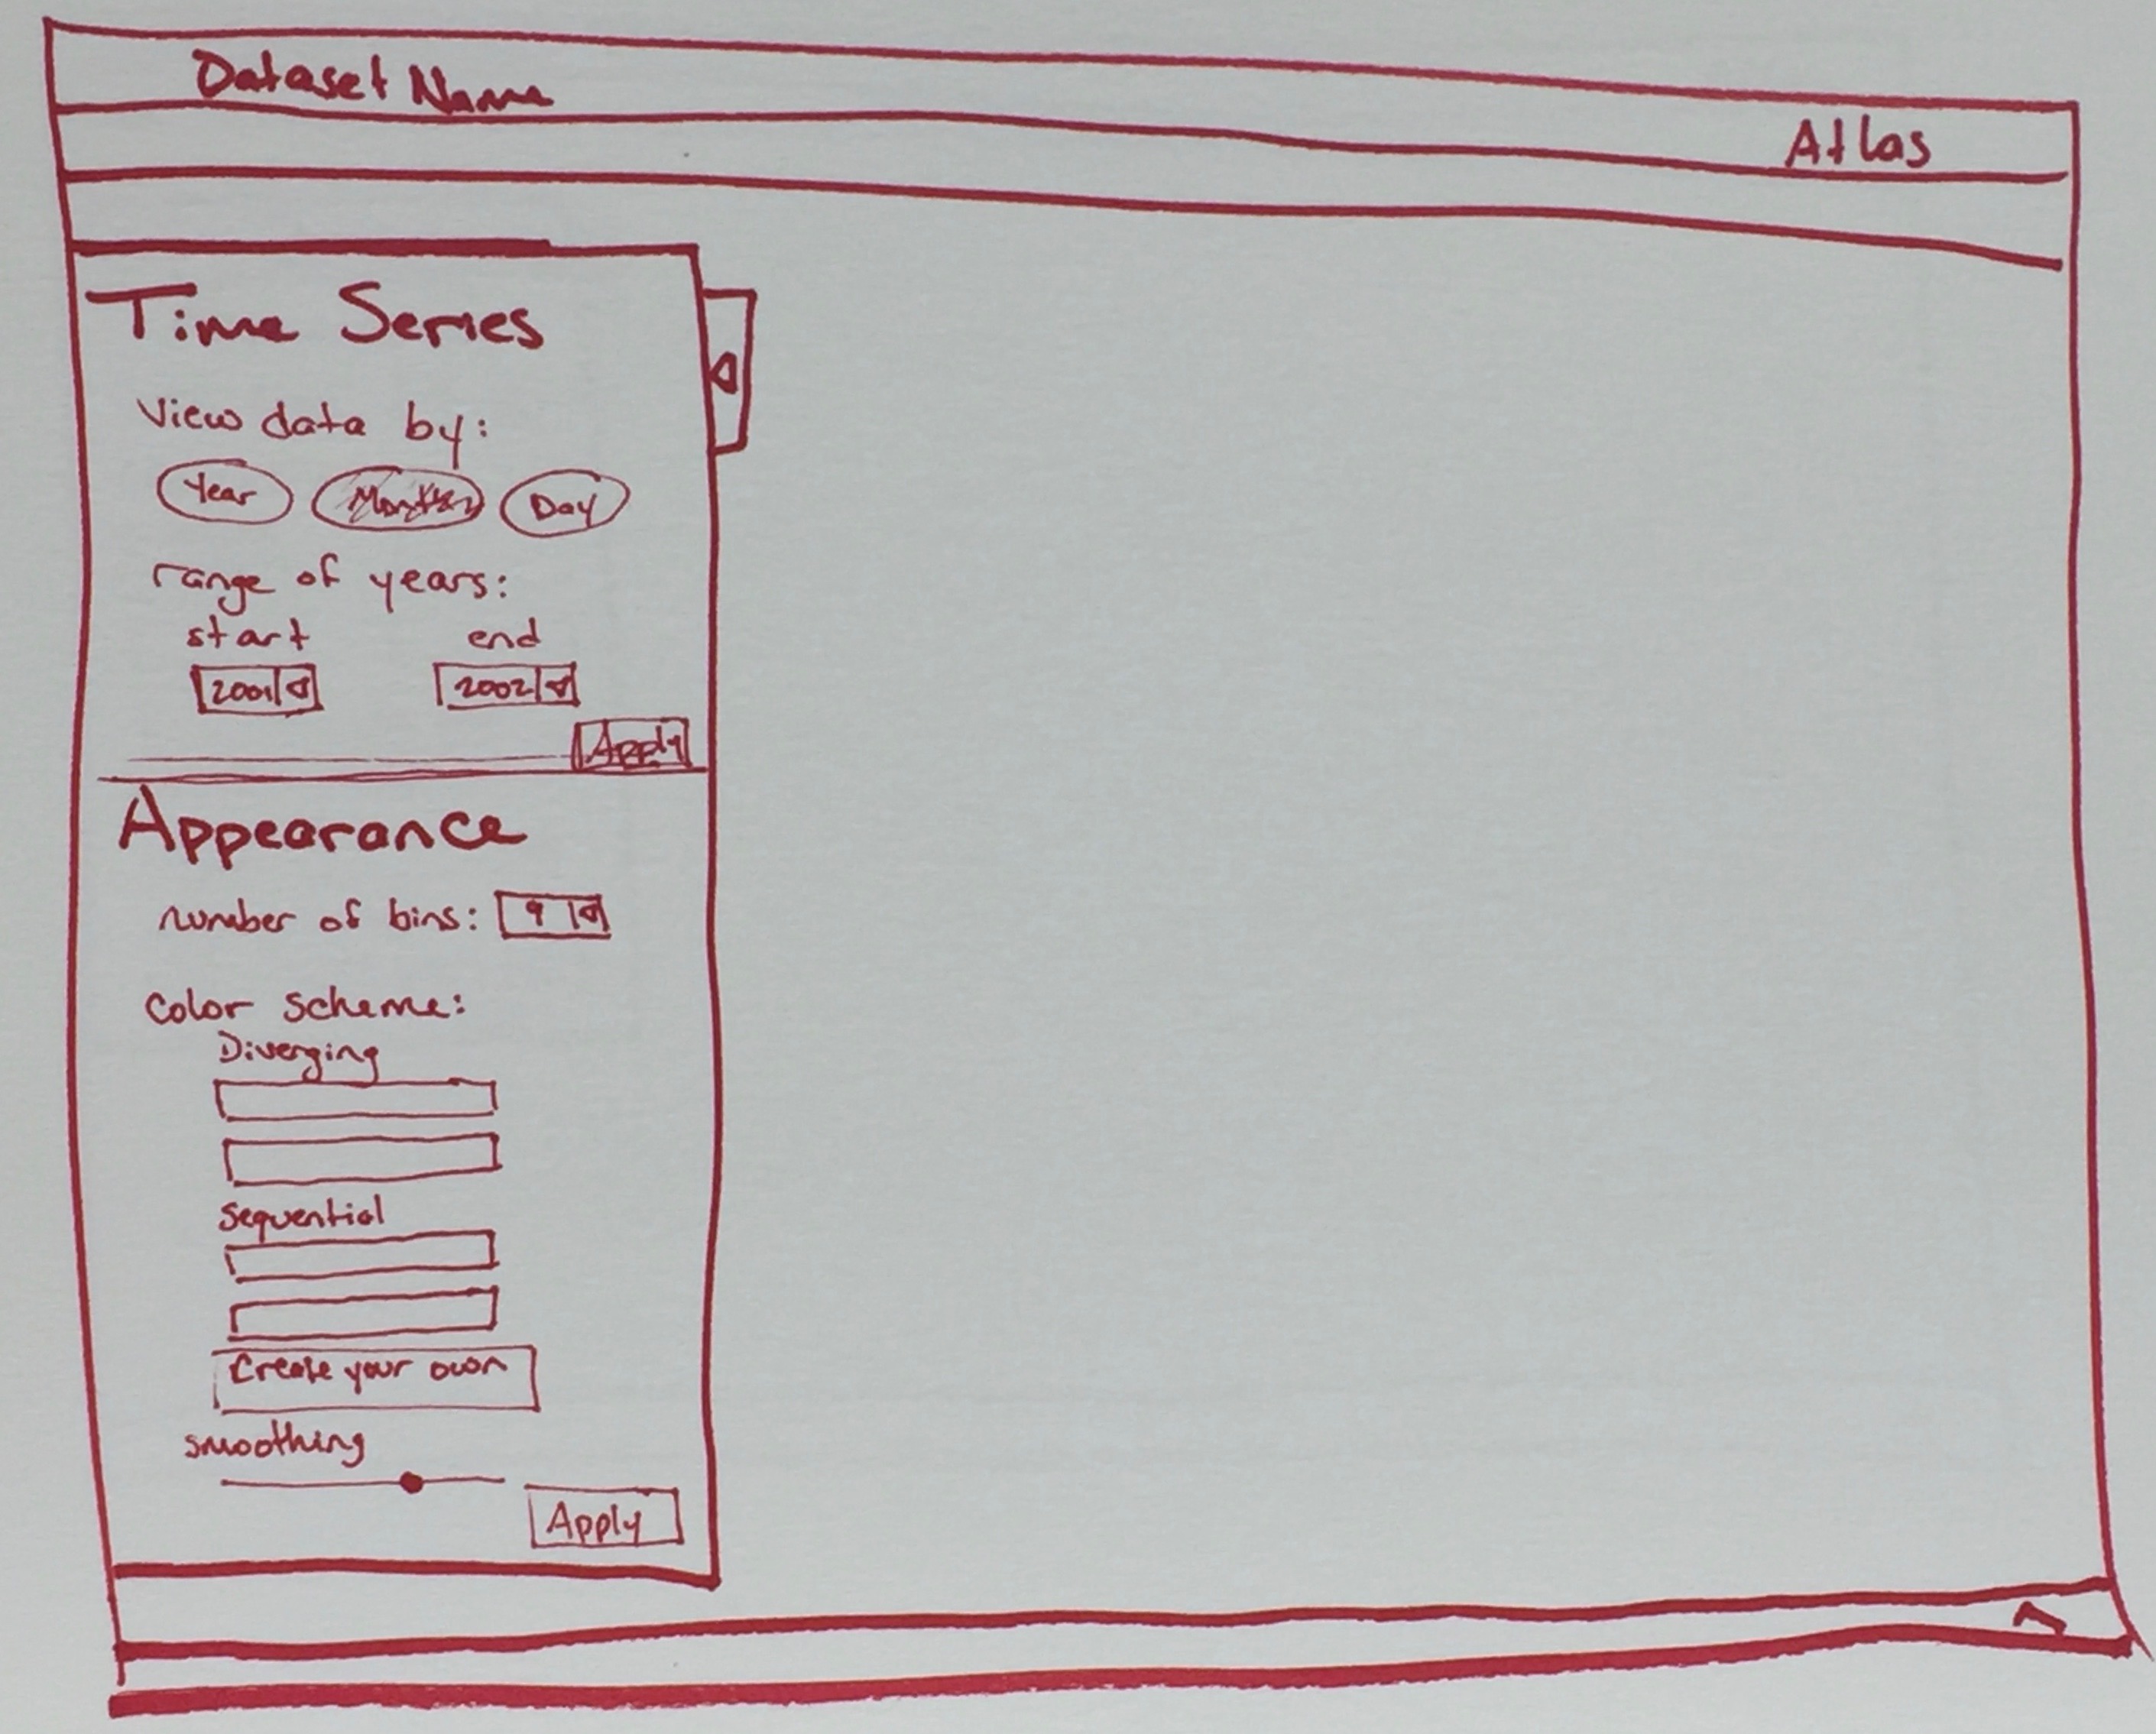 Dataset Name
Atlas
Time Series
View data by:
Year Month Day
range of years:
start end
2001 2002
Apply
Appearance
number of bins: 9
Color Scheme:
Diverging
sequential
Create your own
smoothing
Apply